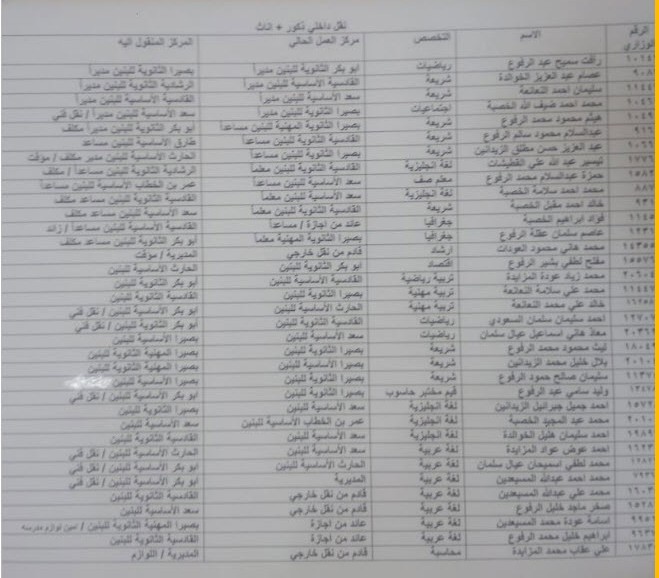 نقل داخلي ذكور + اناث
الرقم الوزاري الاسم التخصص مركز العمل الحالي المركز المنقول اليه
١٠١٤ رافت سميح عبد الرفوع رياضيات ابو بكر الثانوية للبنين مديراً بصيرا الثانوية للبنين مديراً
٩٠٨ عصام عبد العزيز الخوالدة شريعة القادسية الأساسية للبنين مديراً الرشادية الثانوية للبنين مديراً
١١٤٤ سليمان احمد النعانعة شريعة سعد الأساسية للبنين مديراً القادسية الأساسية للبنين مديراً
١٠٤٦ محمد احمد ضيف الله الخصبة اجتماعيات بصيرا الثانوية للبنين مديراً سعد الأساسية للبنين مديراً / نقل فني
١٠٤٩ هيثم محمود محمد الرفوع شريعة بصيرا الثانوية المهنية للبنين مساعداً ابو بكر الثانوية للبنين مديراً مكلف
٩١٦ عبدالسلام محمود سالم الرفوع شريعة القادسية الثانوية للبنين مساعداً طارق الأساسية للبنين مساعد
١٠٦٦ عبد العزيز حسن مطلق الزيدانين شريعة بصيرا الثانوية للبنين مساعداً الحارث الأساسية للبنين مدير مكلف / مؤقت
١٧٧٦ تيسير عبد الله علي القطيشات لغة انجليزية القادسية الأساسية للبنين مساعداً الرشادية الثانوية للبنين مساعداً / مكلف
١٥٨٢ حمزة عبدالسلام محمد الرفوع معلم صف سعد الأساسية للبنين مساعداً عمر بن الخطاب الأساسية للبنين مساعداً
٨٨٧ محمد احمد سلامة الخصبة لغة انجليزية بصيرا الأساسية للبنين معلماً القادسية الثانوية للبنين مساعد مكلف
٩٣٦ خالد احمد مقبل الخصبة شريعة القادسية الثانوية للبنين معلماً سعد الأساسية للبنين مساعد مكلف
١١٤٥ فؤاد ابراهيم الخصبة جغرافيا عائد من اجازة / مساعداً القادسية الأساسية للبنين مساعداً / زائد
١٢٣١ عاصم سلمان عطلة الرفوع جغرافيا بصيرا الثانوية المهنية معلماً ابو بكر الثانوية للبنين مساعد مكلف
١٤٣٥٥ محمد هاني محمود العودات ارشاد قادم من نقل خارجي المديرية / مؤقت
١٥٥٧٦ مفلح لطفي بشير الرفوع اقتصاد ابو بكر الثانوية للبنين الحارث الأساسية للبنين
٢٠٦٠٤ محمد زياد عودة المزايدة تربية رياضية القادسية الأساسية للبنين بصيرا الأساسية للبنين
١١٤٤٧ محمد علي سلامة النعانعة تربية مهنية بصيرا الثانوية للبنين القادسية الثانوية للبنين
خالد علي محمد النعانعة تربية مهنية الحارث الأساسية للبنين ابو بكر الأساسية للبنين / نقل فني
١٢٧٠٧ احمد سليمان سلمان السعودي رياضيات القادسية الثانوية للبنين ابو بكر الثانوية للبنين / نقل فني
معاذ هاني اسماعيل عيال سلمان رياضيات سعد الأساسية للبنين بصيرا الأساسية للبنين
١٨٠٤٩ ليث محمود محمد الرفوع شريعة بصيرا الثانوية للبنين بصيرا المهنية الثانوية للبنين
بلال خليل محمد الزيدانين شريعة بصيرا الأساسية للبنين بصيرا المهنية الثانوية للبنين
١١٣٧ سليمان صالح حمود الرفوع شريعة بصيرا الأساسية للبنين بصيرا الأساسية للبنين
وليد سامي عبد الرفوع قيم مختبر حاسوب بصيرا الثانوية للبنين ابو بكر الأساسية للبنين / نقل فني
١٥٧٢ احمد جميل جبرائيل الزيدانين لغة انجليزية سعد الأساسية للبنين بصيرا الثانوية للبنين
محمد عبد المجيد الخصبة لغة انجليزية عمر بن الخطاب الأساسية للبنين سعد الأساسية للبنين
١٩٨٩ احمد سليمان هليل الخوالدة لغة انجليزية سعد الأساسية للبنين القادسية الثانوية للبنين
١٦٢٣ احمد عوض عواد المزايدة لغة عربية سعد الأساسية للبنين الحارث الأساسية للبنين / نقل فني
محمد لطفي اسميحان عيال سلمان لغة عربية الحارث الأساسية للبنين ابو بكر الأساسية للبنين / نقل فني
محمد احمد عبدالله المسيعدين لغة عربية المديرية ابو بكر الأساسية للبنين / نقل فني
١٦٠٣ محمد علي عبدالله المسيعدين لغة عربية قادم من نقل خارجي القادسية الثانوية للبنين
١٥٢٨ صخر ماجد خليل الرفوع لغة عربية قادم من نقل خارجي سعد الأساسية للبنين
٩٩٥ اسامة عودة محمد المسيعدين لغة عربية عائد من اجازة بصيرا المهنية الثانوية للبنين / امين لوازم مدرسه
٩٦٣ ابراهيم خليل محمد الرفوع لغة عربية عائد من اجازة القادسية الثانوية للبنين
١٧٨٣ علي عقاب محمد المزايدة محاسبة قادم من نقل خارجي المديرية / اللوازم